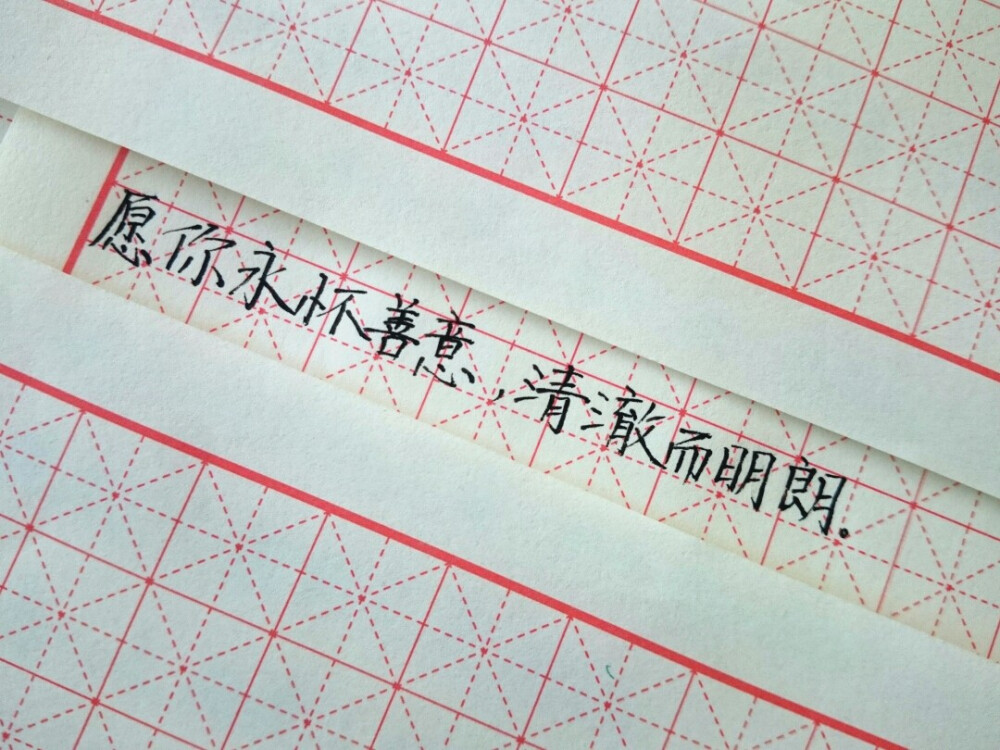 愿你永怀善意,清澈而明朗.